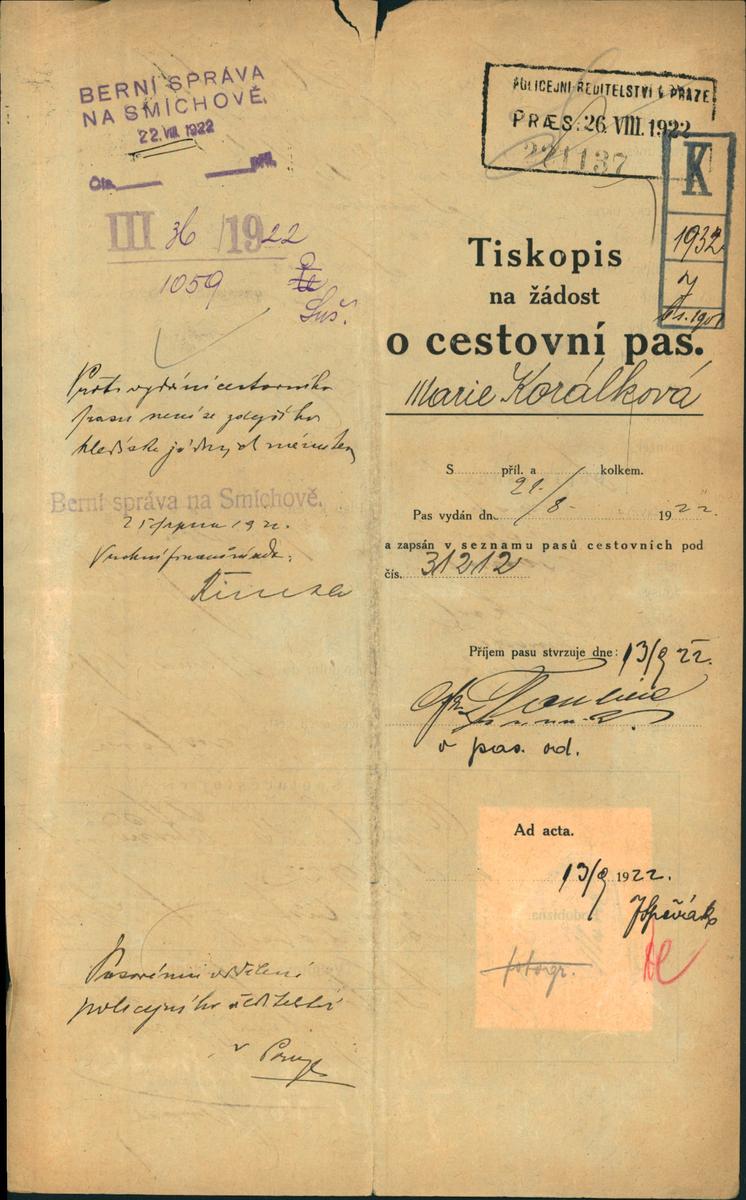 BERNÍ SPRÁVA
NA SMÍCHOVĚ.
22. VIII. 1922
Čís. příl.
III 36 / 1922
1059
Proti vydání cestovního
pasu není se zdejšího
hlediska žádných námitek
Berní správa na Smíchově.
25 srpna 1922.
Vrchní finanční rada:
Pasovému oddělení
policejního ředitelství
v Praze
POLICEJNÍ ŘEDITELSTVÍ V PRAZE
PRÆS: 26. VIII. 1922
221137
K
1932
7
Tiskopis
na žádost
o cestovní pas.
Marie Korálková
S příl. a kolkem.
Pas vydán dne 29./8. 1922.
a zapsán v seznamu pasů cestovních pod
čís. 31212
Příjem pasu stvrzuje dne: 13/9 22.
v pas. od.
Ad acta.
13/9 1922.
fotogr.